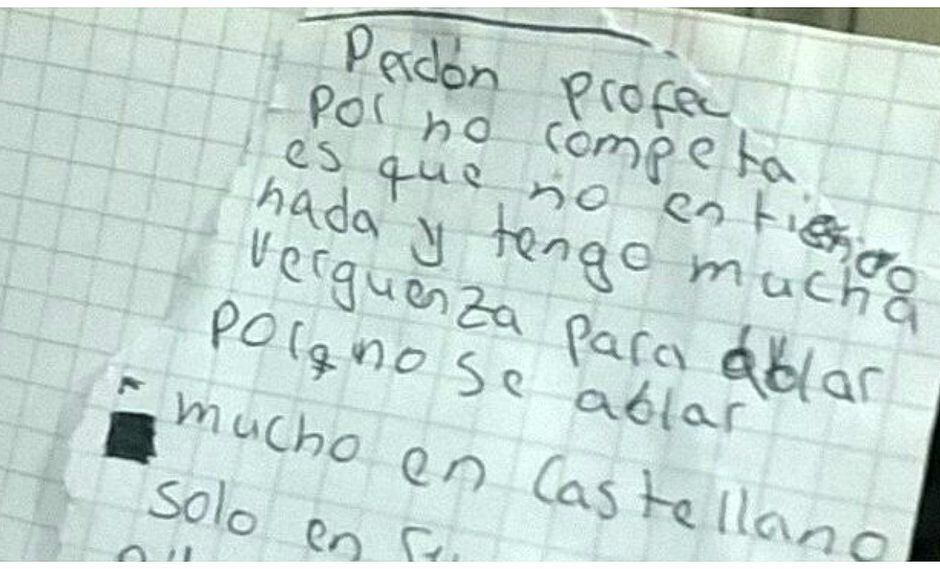 Perdón profe
por no competa
es que no entiendo
nada y tengo mucha
verguenza para ablar
porq no se ablar
mucho en Castellano
solo en